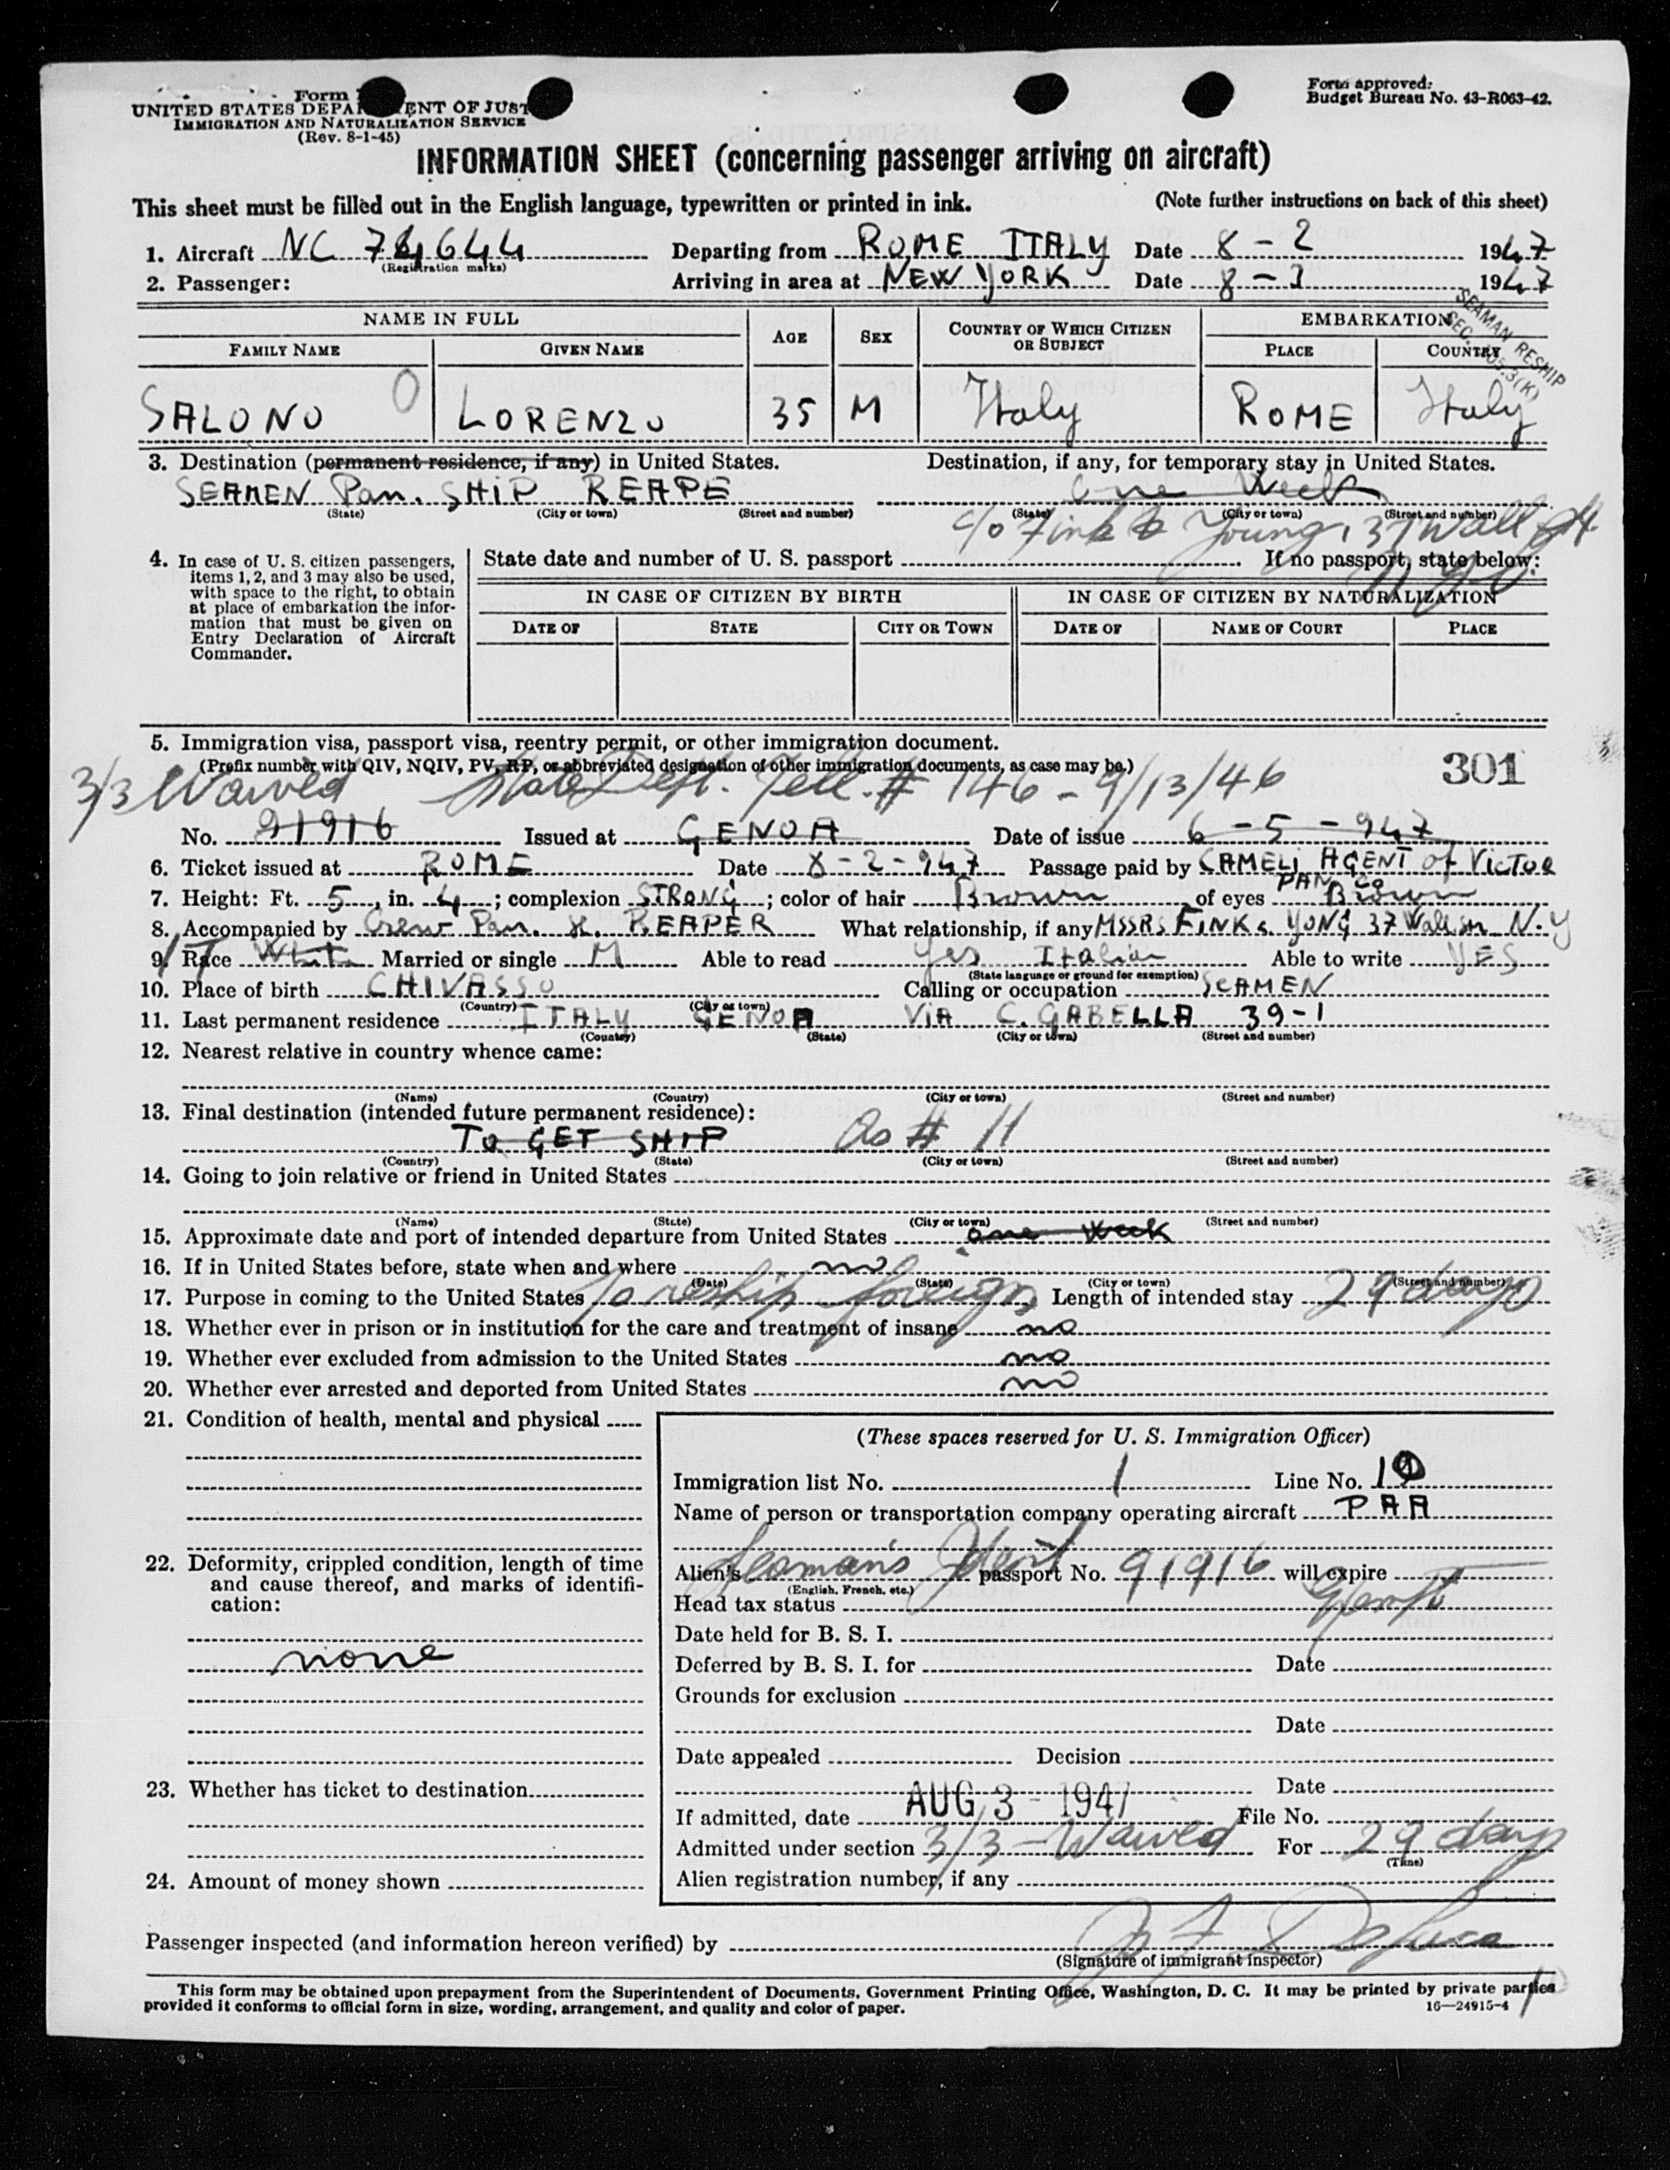 Form
UNITED STATES DEPA ENT OF JUST
IMMIGRATION AND NATURALIZATION SERVICE
(Rev. 8-1-45)
Form approved:
Budget Bureau No. 43-R063-42.
INFORMATION SHEET (concerning passenger arriving on aircraft)
This sheet must be filled out in the English language, typewritten or printed in ink. (Note further instructions on back of this sheet)
1. Aircraft NC 74644 Departing from ROME ITALY Date 8-2 1947
(Registration marks)
2. Passenger: Arriving in area at NEW YORK Date 8-3 1947
SEAMAN RESHIP
SEC. 105.3(K)
NAME IN FULL AGE SEX COUNTRY OF WHICH CITIZEN OR SUBJECT EMBARKATION
FAMILY NAME GIVEN NAME PLACE COUNTRY
SALONO O LORENZO 35 M Italy ROME Italy
3. Destination (permanent residence, if any) in United States. Destination, if any, for temporary stay in United States.
SEAMEN Pan. SHIP REAPE one Week
(State) (City or town) (Street and number) (State) (City or town) (Street and number)
c/o Fink & Young, 37 Wall St
N.Y.C.
4. In case of U. S. citizen passengers, items 1, 2, and 3 may also be used, with space to the right, to obtain at place of embarkation the information that must be given on Entry Declaration of Aircraft Commander.
State date and number of U. S. passport If no passport, state below:
IN CASE OF CITIZEN BY BIRTH IN CASE OF CITIZEN BY NATURALIZATION
DATE OF STATE CITY OR TOWN DATE OF NAME OF COURT PLACE
5. Immigration visa, passport visa, reentry permit, or other immigration document.
(Prefix number with QIV, NQIV, PV, RP, or abbreviated designation of other immigration documents, as case may be.)
301
3/3 Waived State Dept. Tell. # 146 - 9/13/46
No. 91916 Issued at GENOA Date of issue 6-5-947
6. Ticket issued at ROME Date 8-2-947 Passage paid by CAMELI AGENT of VICTOR
PAN CO
7. Height: Ft. 5, in. 4; complexion STRONG; color of hair Brown of eyes Brown
8. Accompanied by Crew Pan. REAPER What relationship, if any MSSRS FINK & YONG 37 Wall N.Y
9. Race White IT Married or single M Able to read Yes Italian Able to write YES
(State language or ground for exemption)
10. Place of birth CHIVASSO Calling or occupation SEAMEN
(Country) (City or town)
11. Last permanent residence ITALY GENOA VIA C. GABELLA 39-1
(Country) (State) (City or town) (Street and number)
12. Nearest relative in country whence came:
(Name) (Country) (City or town) (Street and number)
13. Final destination (intended future permanent residence):
TO GET SHIP As # 11
(Country) (State) (City or town) (Street and number)
14. Going to join relative or friend in United States
(Name) (State) (City or town) (Street and number)
15. Approximate date and port of intended departure from United States one week
16. If in United States before, state when and where no
(Date) (State) (City or town) (Street and number)
17. Purpose in coming to the United States To reship foreign Length of intended stay 29 days
18. Whether ever in prison or in institution for the care and treatment of insane no
19. Whether ever excluded from admission to the United States no
20. Whether ever arrested and deported from United States no
21. Condition of health, mental and physical
22. Deformity, crippled condition, length of time and cause thereof, and marks of identification:
none
23. Whether has ticket to destination
24. Amount of money shown
(These spaces reserved for U. S. Immigration Officer)
Immigration list No. 1 Line No. 10
Name of person or transportation company operating aircraft PAA
Alien's Seaman's Ident passport No. 91916 will expire
(English, French, etc.)
Head tax status Exempt
Date held for B. S. I.
Deferred by B. S. I. for Date
Grounds for exclusion
Date
Date appealed Decision
Date
If admitted, date AUG 3 - 1947 File No.
Admitted under section 3/3 - Waived For 29 days
(Time)
Alien registration number, if any
Passenger inspected (and information hereon verified) by
(Signature of immigrant inspector)
This form may be obtained upon prepayment from the Superintendent of Documents, Government Printing Office, Washington, D. C. It may be printed by private parties
provided it conforms to official form in size, wording, arrangement, and quality and color of paper.
16—24915-4